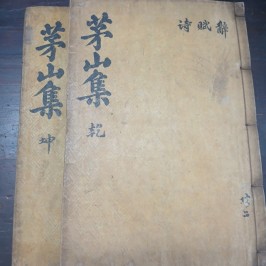 茅山集
乾
辭賦诗
茅山集
坤